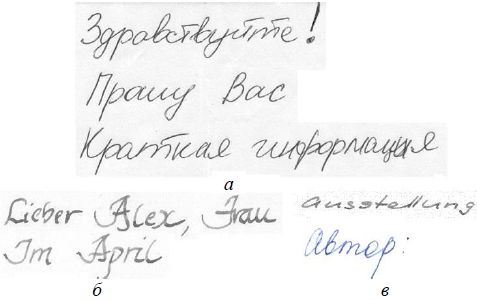 Здравствуйте!
Прошу Вас
Краткая информация
а
Lieber Alex, Frau
Im April
б
ausstellung
Автор:
в